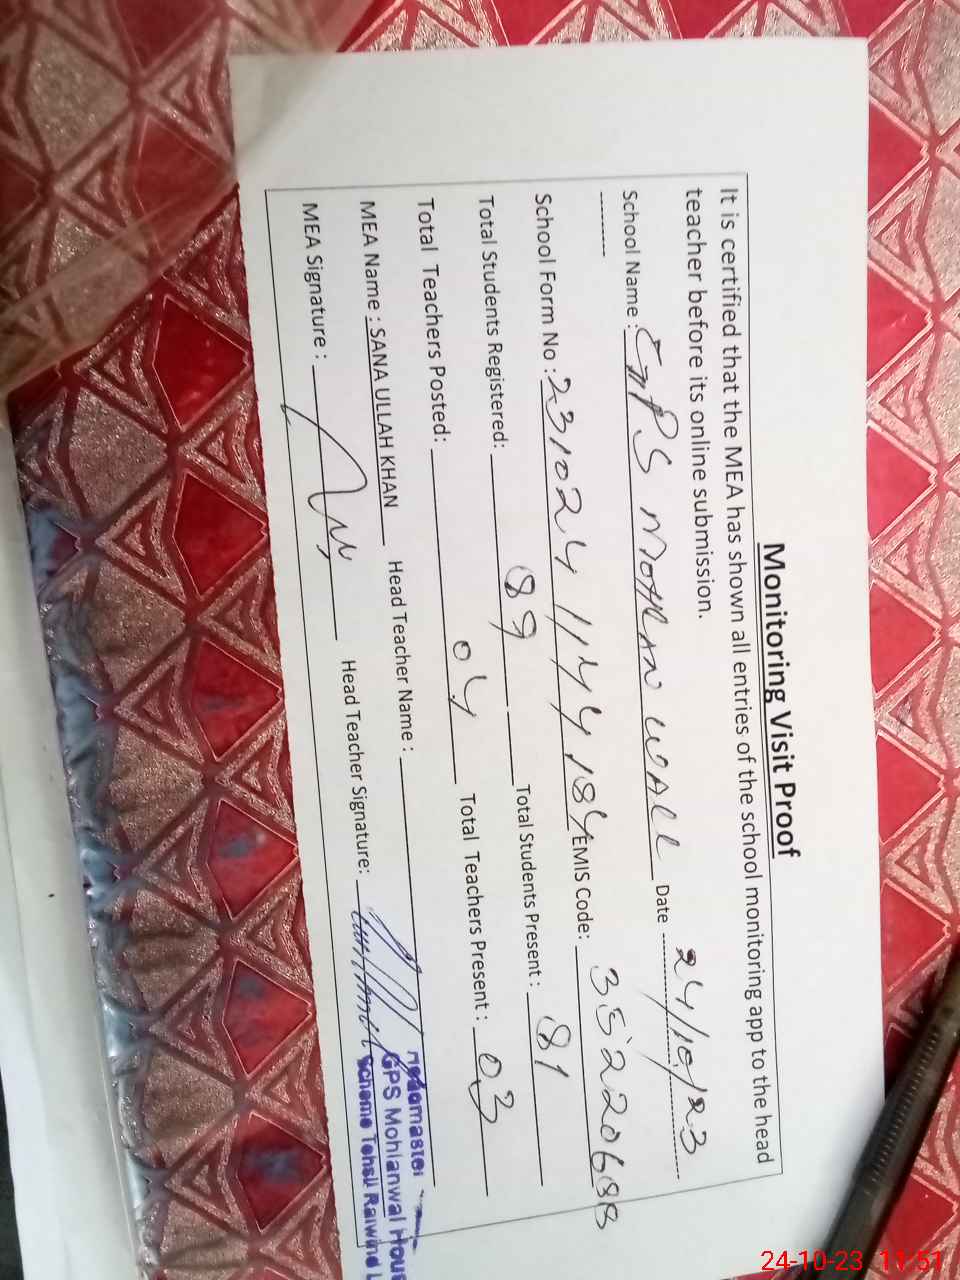 Monitoring Visit Proof
It is certified that the MEA has shown all entries of the school monitoring app to the head
teacher before its online submission.
School Name : GPS MOHLAN WALL Date 24/10/23
School Form No : 2310241144184 EMIS Code: 35220688
Total Students Registered: 89 Total Students Present : 81
Total Teachers Posted: 04 Total Teachers Present : 03
MEA Name : SANA ULLAH KHAN Head Teacher Name :
MEA Signature : Head Teacher Signature:
Headmaster
GPS Mohlanwal Hous
Scheme Tehsil Raiwind L
24-10-23 11:51